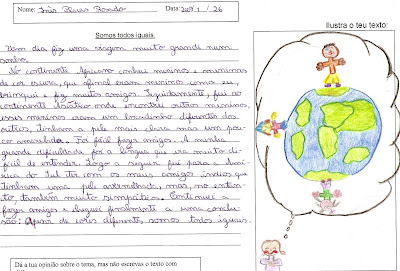 Nome: Inês Rosado Data: 1 / 26
Ilustra o teu texto:
Somos todos iguais.
Um dia fiz uma viagem muito grande num
sonho.
No continente Africano conheci meninos e meninas
de cor escura, que afinal eram meninos como eu,
brinquei e fiz muitos amigos. Seguidamente, fui ao
continente Asiático onde encontrei outros meninos,
esses meninos eram um bocadinho diferentes dos
outros, tinham a pele mais clara mas um pou-
co amarelada. Foi fácil fazer amigos. A minha
grande dificuldade foi a língua que era muito di-
fícil de entender. Logo a seguir fui para a Amé-
rica do Sul ter com os meus amigos índios que
tinham uma pele avermelhada, mas, no entan-
to, também muito simpáticos. Continuei a
fazer amigos e cheguei finalmente a uma conclu-
são: Apesar de cores diferentes somos todos iguais.
Dá a tua opinião sobre o tema, mas não escrevas o texto com